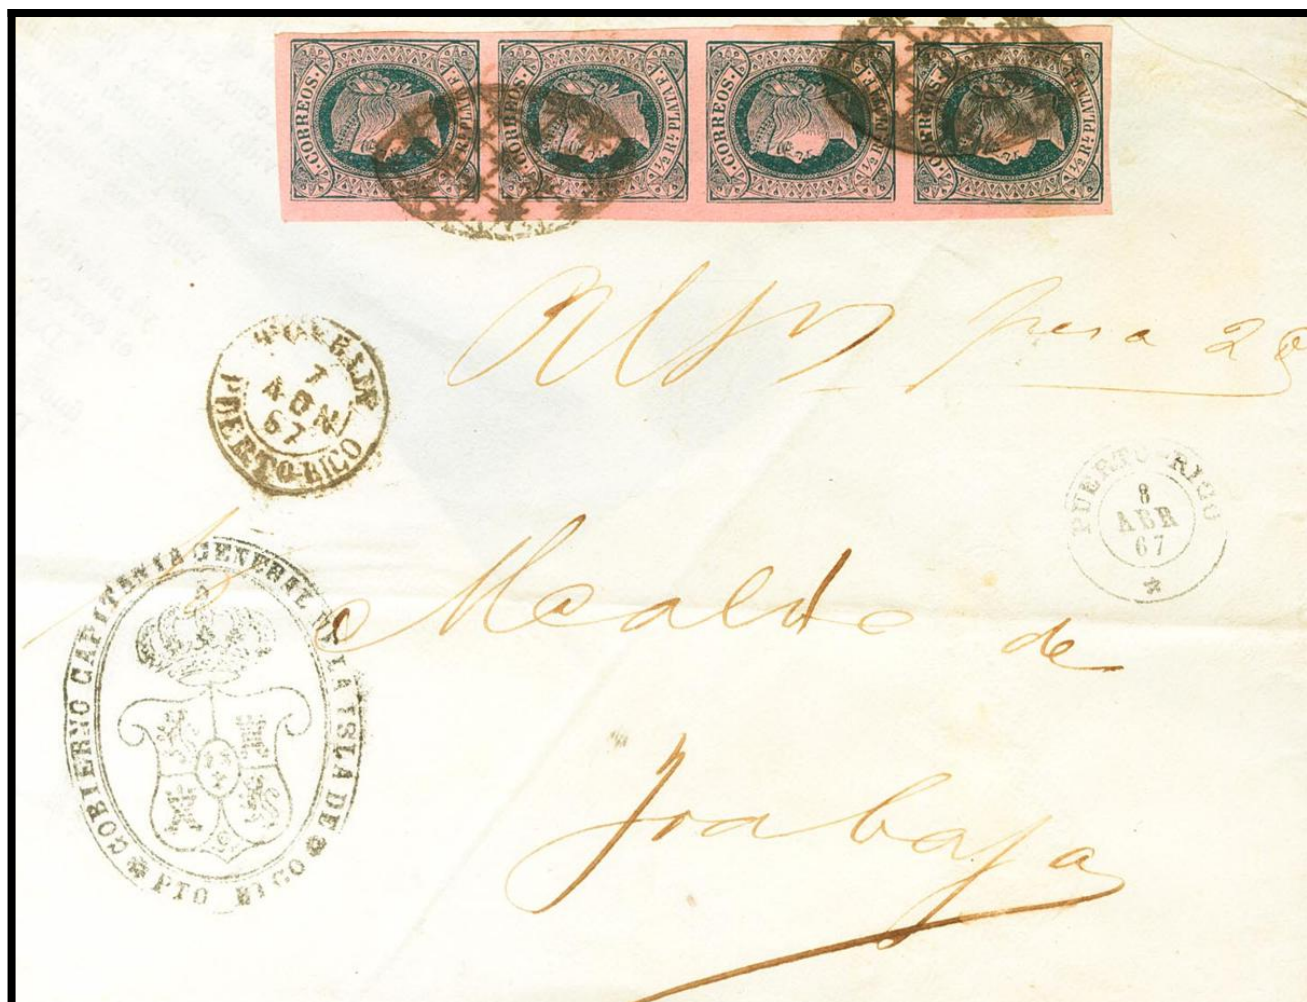 ·CORREOS· ½ Rl PLATA F.
·CORREOS· ½ Rl PLATA F.
·CORREOS· ½ Rl PLATA F.
·CORREOS· ½ Rl PLATA F.
pesa 2
7
67
PUERTO-RICO
PUERTO-RICO
8
ABR
67
GOBIERNO CAPITANIA GENERAL DE LA YSLA DE PTO RICO
Alcalde de
Toabaja